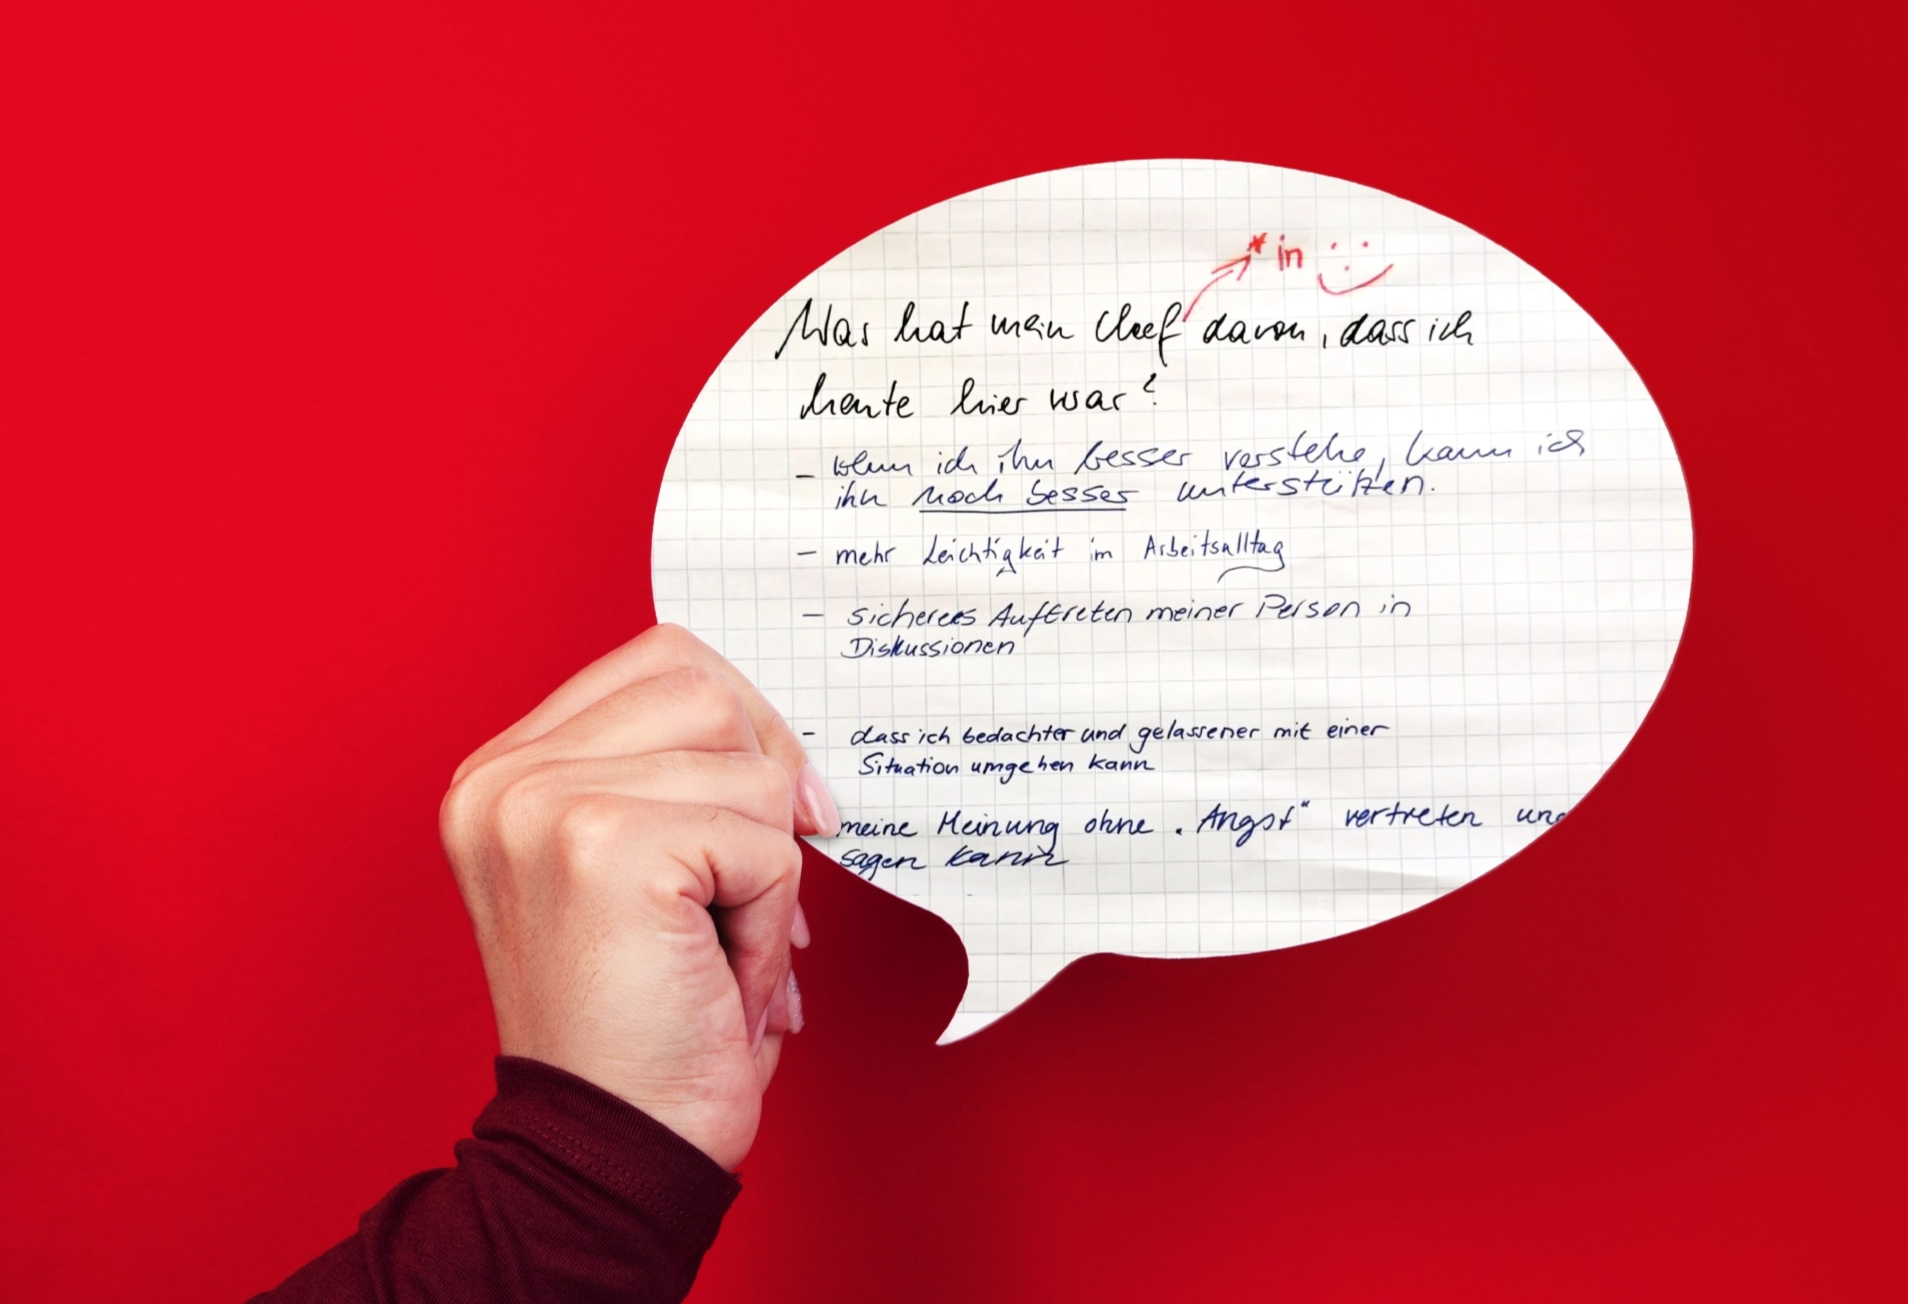 *in
Was hat mein Chef davon, dass ich
heute hier war?
- Wenn ich ihn besser verstehe, kann ich
ihn noch besser unterstützen.
- mehr Leichtigkeit im Arbeitsalltag
- sicheres Auftreten meiner Person in
Diskussionen
- dass ich bedachter und gelassener mit einer
Situation umgehen kann
meine Meinung ohne "Angst" vertreten und
sagen kann